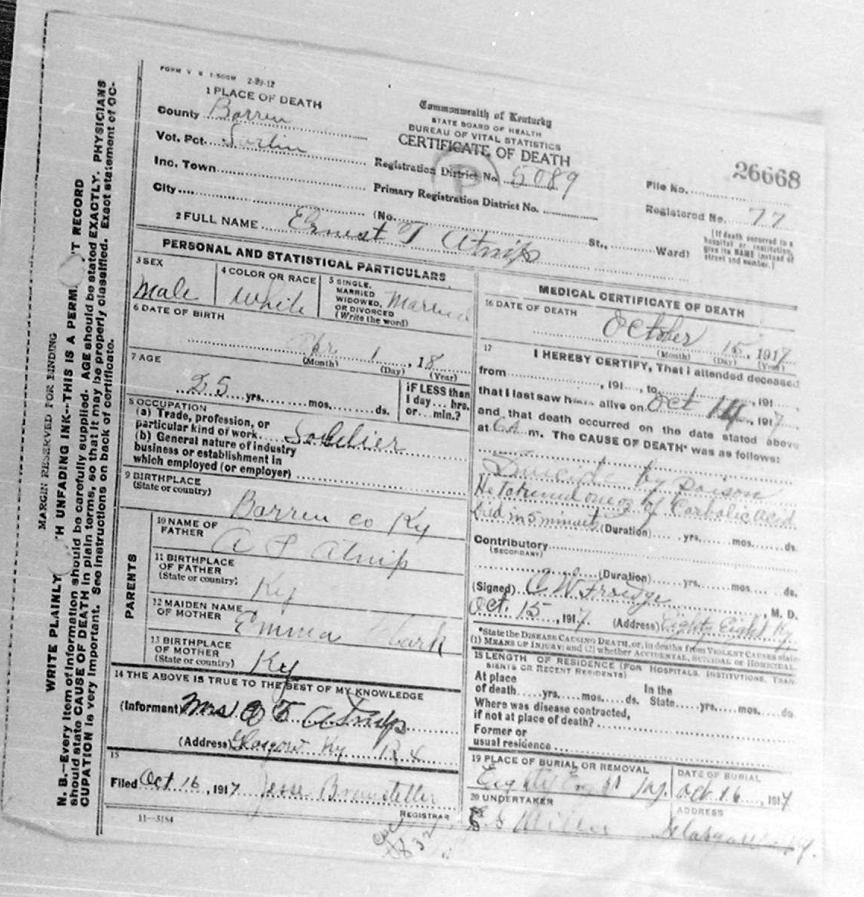 FORM V. S. 1-500M 2-29-12
1 PLACE OF DEATH
County Barren
Vot. Pct.
Inc. Town
City
Commonwealth of Kentucky
STATE BOARD OF HEALTH
BUREAU OF VITAL STATISTICS
CERTIFICATE OF DEATH
Registration District No. 5089
Primary Registration District No.
(No. St., Ward)
File No. 26668
Registered No. 77
[If death occurred in a
hospital or institution,
give its NAME instead of
street and number.]
2 FULL NAME Ernest T Atnip
PERSONAL AND STATISTICAL PARTICULARS
3 SEX
Male
4 COLOR OR RACE
White
5 SINGLE,
MARRIED
WIDOWED,
OR DIVORCED
(Write the word)
Married
6 DATE OF BIRTH
Apr 1, 18
(Month) (Day) (Year)
7 AGE
25 yrs. mos. ds.
IF LESS than
1 day hrs.
or min.?
8 OCCUPATION
(a) Trade, profession, or
particular kind of work Soldier
(b) General nature of industry
business or establishment in
which employed (or employer)
9 BIRTHPLACE
(State or country)
Barren co Ky
PARENTS
10 NAME OF
FATHER
Atnip
11 BIRTHPLACE
OF FATHER
(State or country)
Ky
12 MAIDEN NAME
OF MOTHER
Emma
13 BIRTHPLACE
OF MOTHER
(State or country)
Ky
14 THE ABOVE IS TRUE TO THE BEST OF MY KNOWLEDGE
(Informant) Mrs Atnip
(Address) Glasgow Ky R4
15
Filed Oct 16, 1917 Jesse
REGISTRAR
11-3184
MEDICAL CERTIFICATE OF DEATH
16 DATE OF DEATH
October 15, 1917
(Month) (Day) (Year)
17 I HEREBY CERTIFY, That I attended deceased
from , 191 , to , 191
that I last saw h alive on Oct 14, 1917
and that death occurred on the date stated above
at 6 A m. The CAUSE OF DEATH* was as follows:
Suicide by poison
He of Carbolic acid
in 5 minutes (Duration) yrs. mos. ds.
Contributory
(SECONDARY)
(Duration) yrs. mos. ds.
(Signed) C W Froedge, M. D.
Oct. 15, 1917 (Address) Eighty Eight Ky
*State the DISEASE CAUSING DEATH, or, in deaths from VIOLENT CAUSES state
(1) MEANS OF INJURY; and (2) whether ACCIDENTAL, SUICIDAL or HOMICIDAL.
18 LENGTH OF RESIDENCE (FOR HOSPITALS, INSTITUTIONS, TRANSIENTS OR RECENT RESIDENTS)
At place
of death yrs. mos. ds.
In the
State yrs. mos. ds.
Where was disease contracted,
if not at place of death?
Former or
usual residence
19 PLACE OF BURIAL OR REMOVAL
Eighty Eight Ky.
DATE OF BURIAL
Oct 16, 1917
20 UNDERTAKER
ADDRESS
MARGIN RESERVED FOR BINDING
WRITE PLAINLY UNFADING INK--THIS IS A RECORD
N. B.--Every item of information should be carefully supplied. AGE should be stated EXACTLY. PHYSICIANS
should state CAUSE OF DEATH in plain terms, so that it may be properly classified. Exact statement of OC-
CUPATION is very important. See instructions on back of certificate.